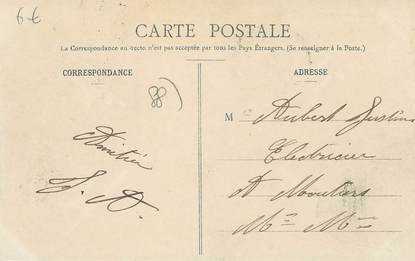 6€
CARTE POSTALE
La Correspondance au recto n'est pas acceptée par tous les Pays Étrangers. (Se renseigner à la Poste.)
CORRESPONDANCE
ADRESSE
88
M Aubert
Electricien
Amitiés
A Moutiers